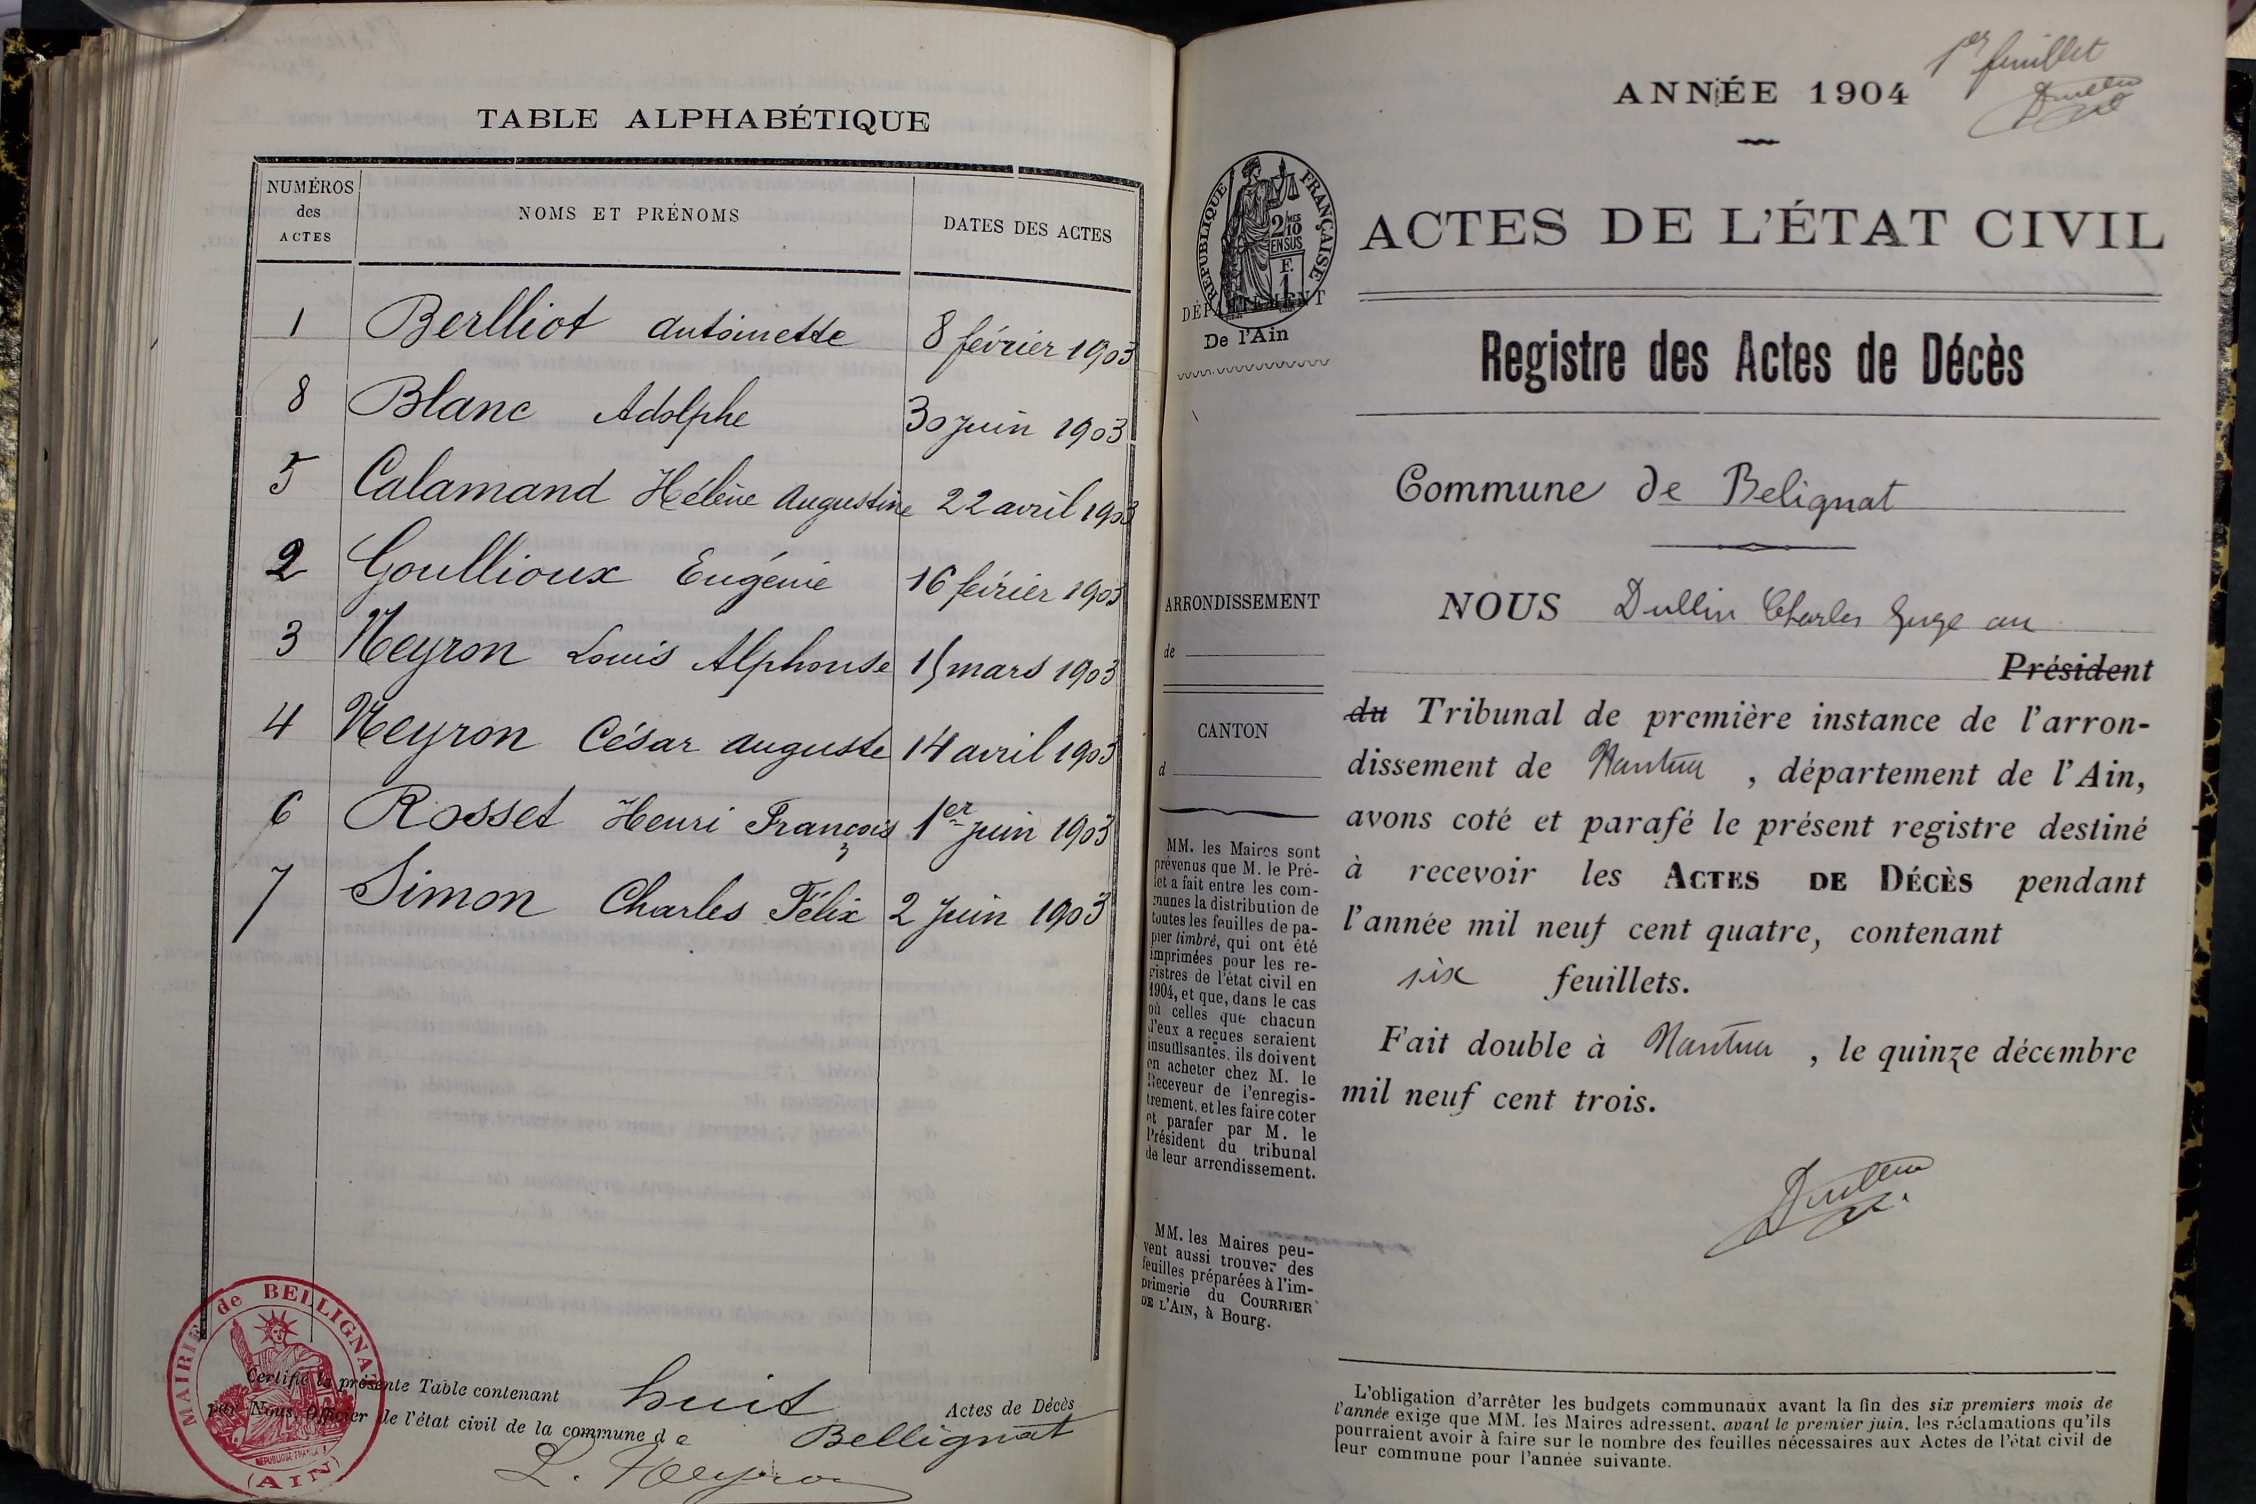 TABLE ALPHABÉTIQUE
NUMÉROS
des
ACTES
NOMS ET PRÉNOMS
DATES DES ACTES
1 Berlliot Antoinette 8 février 1903
8 Blanc Adolphe 30 Juin 1903
5 Calamand Hélène Augustine 22 avril 1903
2 Goullioux Eugénie 16 février 1903
3 Neyron Louis Alphonse 15 mars 1903
4 Neyron César Auguste 14 avril 1903
6 Rosset Henri François 1er juin 1903
7 Simon Charles Félix 2 Juin 1903
MAIRIE de BELLIGNAT
(AIN)
Certifié la présente Table contenant huit Actes de Décès
par Nous, Officier de l'état civil de la commune de Bellignat
L. Neyron
1er feuillet
Dullin
ANNÉE 1904
RÉPUBLIQUE FRANÇAISE
2/10 MES
EN SUS
F.
1
DÉPARTEMENT
De l'Ain
ACTES DE L'ÉTAT CIVIL
Registre des Actes de Décès
Commune de Belignat
ARRONDISSEMENT
de
CANTON
d
MM. les Maires sont
prévenus que M. le Pré-
fet a fait entre les com-
munes la distribution de
toutes les feuilles de pa-
pier timbré, qui ont été
imprimées pour les re-
gistres de l'état civil en
1904, et que, dans le cas
où celles que chacun
d'eux a reçues seraient
insuffisantes, ils doivent
en acheter chez M. le
Receveur de l'enregis-
trement, et les faire coter
et parafer par M. le
Président du tribunal
de leur arrondissement.
MM. les Maires peu-
vent aussi trouver des
feuilles préparées à l'im-
primerie du COURRIER
DE L'AIN, à Bourg.
NOUS Dullin Charles Juge au
Président
du Tribunal de première instance de l'arron-
dissement de Nantua , département de l'Ain,
avons coté et parafé le présent registre destiné
à recevoir les ACTES DE DÉCÈS pendant
l'année mil neuf cent quatre, contenant
six feuillets.
Fait double à Nantua , le quinze décembre
mil neuf cent trois.
Dullin
L'obligation d'arrêter les budgets communaux avant la fin des six premiers mois de
l'année exige que MM. les Maires adressent, avant le premier juin, les réclamations qu'ils
pourraient avoir à faire sur le nombre des feuilles nécessaires aux Actes de l'état civil de
leur commune pour l'année suivante.